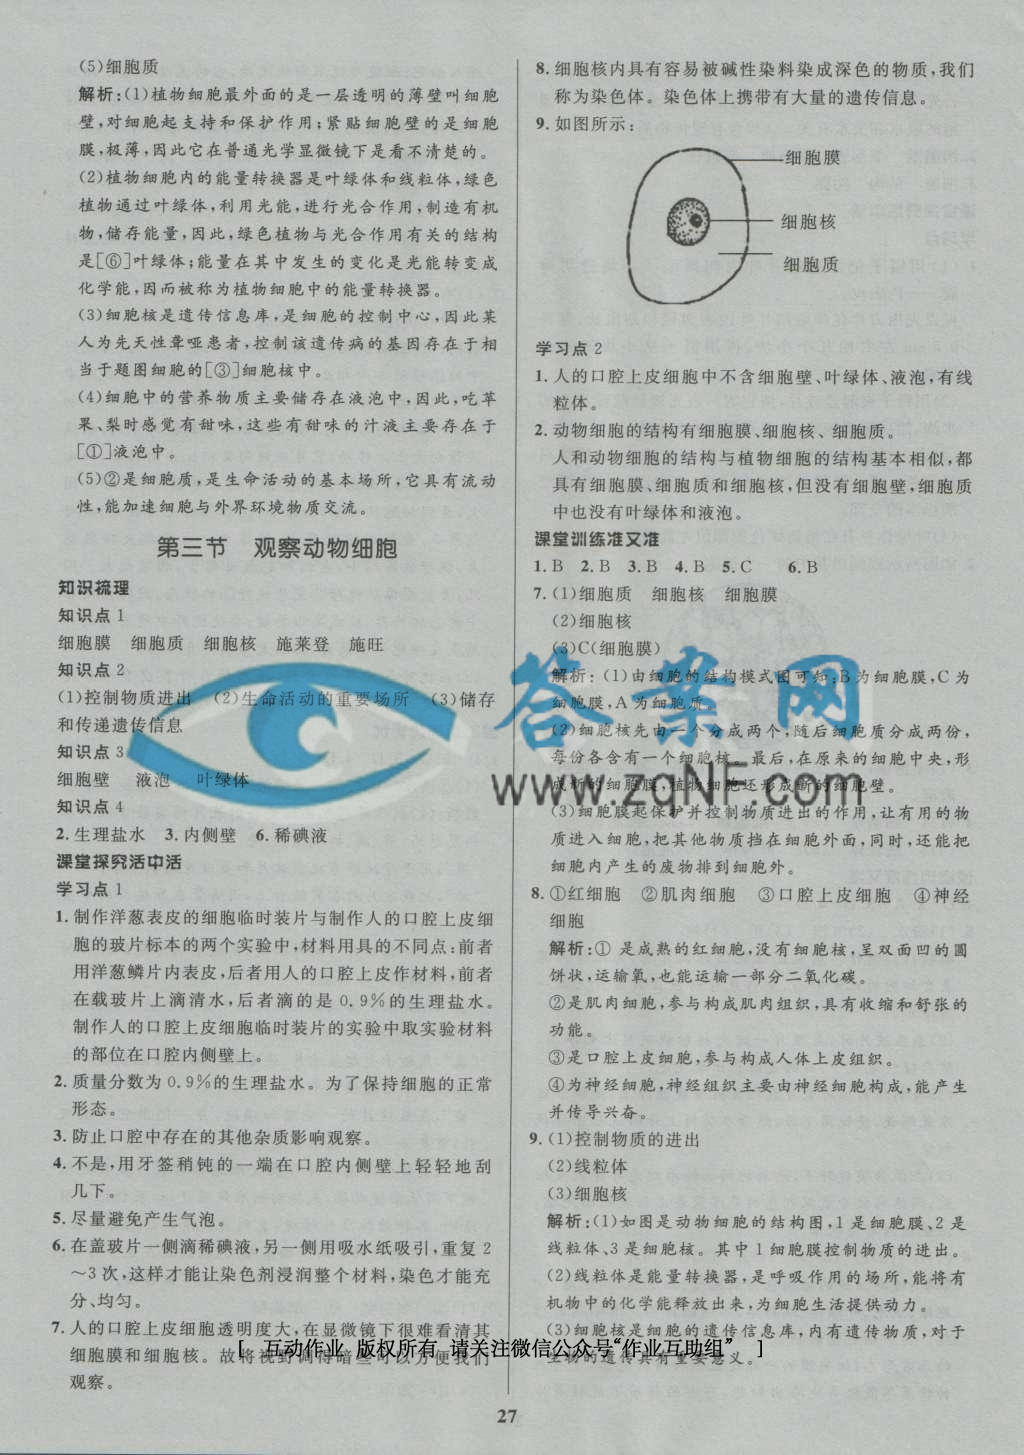 (5)细胞质
解析:(1)植物细胞最外面的是一层透明的薄壁叫细胞
壁,对细胞起支持和保护作用;紧贴细胞壁的是细胞
膜,极薄,因此它在普通光学显微镜下是看不清楚的。
(2)植物细胞内的能量转换器是叶绿体和线粒体,绿色
植物通过叶绿体,利用光能,进行光合作用,制造有机
物,储存能量,因此,绿色植物与光合作用有关的结构
是[⑥]叶绿体;能量在其中发生的变化是光能转变成
化学能,因而被称为植物细胞中的能量转换器。
(3)细胞核是遗传信息库,是细胞的控制中心,因此某
人为先天性聋哑患者,控制该遗传病的基因存在于相
当于题图细胞的[③]细胞核中。
(4)细胞中的营养物质主要储存在液泡中,因此,吃苹
果、梨时感觉有甜味,这些有甜味的汁液主要存在于
[①]液泡中。
(5)②是细胞质,是生命活动的基本场所,它具有流动
性,能加速细胞与外界环境物质交流。
第三节 观察动物细胞
知识梳理
知识点1
细胞膜 细胞质 细胞核 施莱登 施旺
知识点2
(1)控制物质进出 (2)生命活动的重要场所 (3)储存
和传递遗传信息
知识点3
细胞壁 液泡 叶绿体
知识点4
2.生理盐水 3.内侧壁 6.稀碘液
课堂探究活中活
学习点1
1.制作洋葱表皮的细胞临时装片与制作人的口腔上皮细
胞的玻片标本的两个实验中,材料用具的不同点:前者
用洋葱鳞片内表皮,后者用人的口腔上皮作材料,前者
在载玻片上滴清水,后者滴的是0.9%的生理盐水。
制作人的口腔上皮细胞临时装片的实验中取实验材料
的部位在口腔内侧壁上。
2.质量分数为0.9%的生理盐水。为了保持细胞的正常
形态。
3.防止口腔中存在的其他杂质影响观察。
4.不是,用牙签稍钝的一端在口腔内侧壁上轻轻地刮
几下。
5.尽量避免产生气泡。
6.在盖玻片一侧滴稀碘液,另一侧用吸水纸吸引,重复2
～3次,这样才能让染色剂浸润整个材料,染色才能充
分、均匀。
7.人的口腔上皮细胞透明度大,在显微镜下很难看清其
细胞膜和细胞核。故将视野调得暗些可以方便我们
观察。
8.细胞核内具有容易被碱性染料染成深色的物质,我们
称为染色体。染色体上携带有大量的遗传信息。
9.如图所示:
细胞膜
细胞核
细胞质
学习点2
1.人的口腔上皮细胞中不含细胞壁、叶绿体、液泡,有线
粒体。
2.动物细胞的结构有细胞膜、细胞核、细胞质。
人和动物细胞的结构与植物细胞的结构基本相似,都
具有细胞膜、细胞质和细胞核,但没有细胞壁,细胞质
中也没有叶绿体和液泡。
课堂训练准又准
1.B 2.B 3.B 4.B 5.C 6.B
7.(1)细胞质 细胞核 细胞膜
(2)细胞核
(3)C(细胞膜)
解析:(1)由细胞的结构模式图可知:B为细胞核,C为
细胞膜,A为细胞质。
(2)细胞核先由一个分成两个,随后细胞质分成两份,
每份各含有一个细胞核。最后,在原来的细胞中央,形
成新的细胞膜,植物细胞还形成新的细胞壁。
(3)细胞膜起保护并控制物质进出的作用,让有用的物
质进入细胞,把其他物质挡在细胞外面,同时,还能把
细胞内产生的废物排到细胞外。
8.①红细胞 ②肌肉细胞 ③口腔上皮细胞 ④神经
细胞
解析:① 是成熟的红细胞,没有细胞核,呈双面凹的圆
饼状,运输氧,也能运输一部分二氧化碳。
②是肌肉细胞,参与构成肌肉组织,具有收缩和舒张的
功能。
③是口腔上皮细胞,参与构成人体上皮组织。
④为神经细胞,神经组织主要由神经细胞构成,能产生
并传导兴奋。
9.(1)控制物质的进出
(2)线粒体
(3)细胞核
解析:(1)如图是动物细胞的结构图,1是细胞膜、2是
线粒体、3是细胞核。其中1细胞膜控制物质的进出。
(2)线粒体是能量转换器,是呼吸作用的场所,能将有
机物中的化学能释放出来,为细胞生活提供动力。
(3)细胞核是细胞的遗传信息库,内有遗传物质,对于
生物的遗传具有重要意义。
答案网
www.zqNF.com
[ 互动作业 版权所有 请关注微信公众号“作业互助组” ]
27